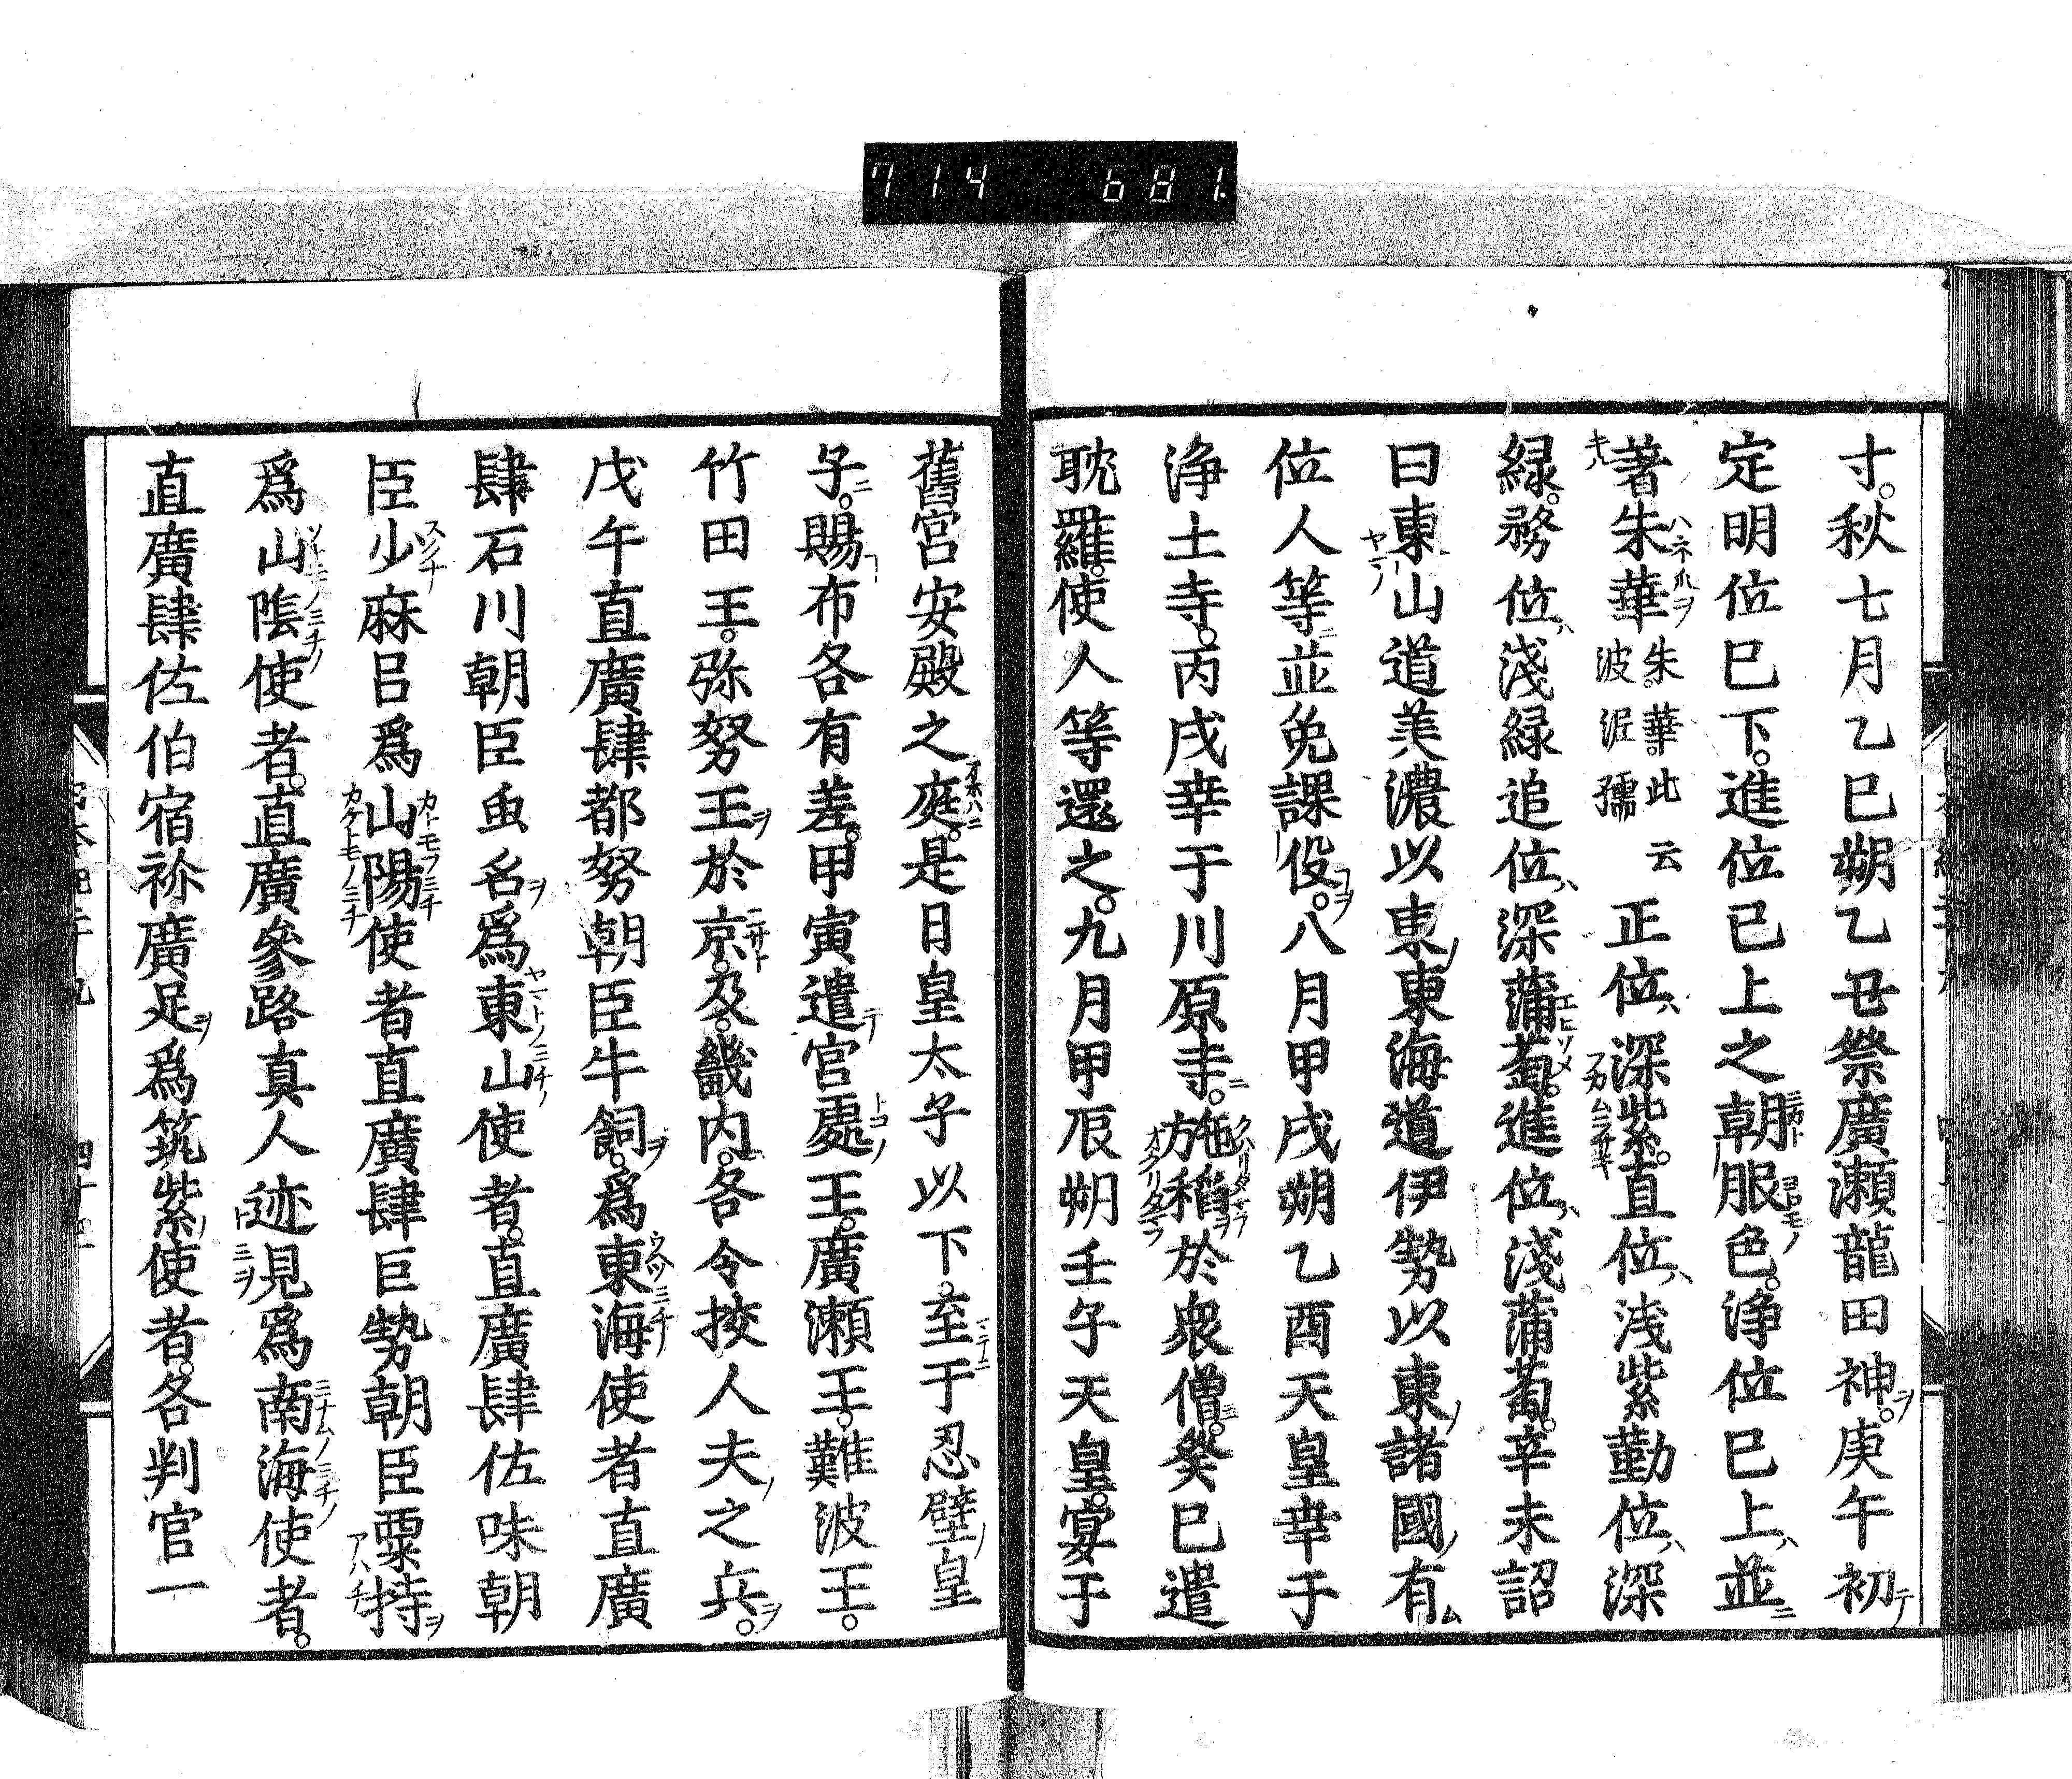 714 681.
寸。秋七月乙巳朔乙丑祭廣瀬龍田神。庚午初
定明位巳下。進位已上之朝服色。浄位巳上並
著朱華朱。華。此云波泥孺正位深紫。直位浅紫勤位深
緑。務位淺緑追位深蒲萄。進位淺蒲萄。辛未詔
曰東山道美濃以東東海道伊勢以東諸國有
位人等並免課役。八月甲戌朔乙酉天皇幸于
浄土寺。丙戌幸于川原寺。施稲於衆僧。癸巳遣
耽羅。使人等還之。九月甲辰朔壬子天皇。宴于
舊宮安殿之庭。是日皇太子以下。至于忍壁皇
子。賜布各有差。甲寅遣宮處王。廣瀬王。難波王。
竹田王。弥努王於京。及。畿内。各令挍人夫之兵。
戊午直廣肆都努朝臣牛飼。爲東海使者直廣
肆石川朝臣虫名爲東山使者。直廣肆佐味朝
臣少麻呂爲山陽使者直廣肆巨勢朝臣粟持
爲山陰使者。直廣參路真人迹見爲南海使者。
直廣肆佐伯宿祢廣足爲筑紫使者。各判官一